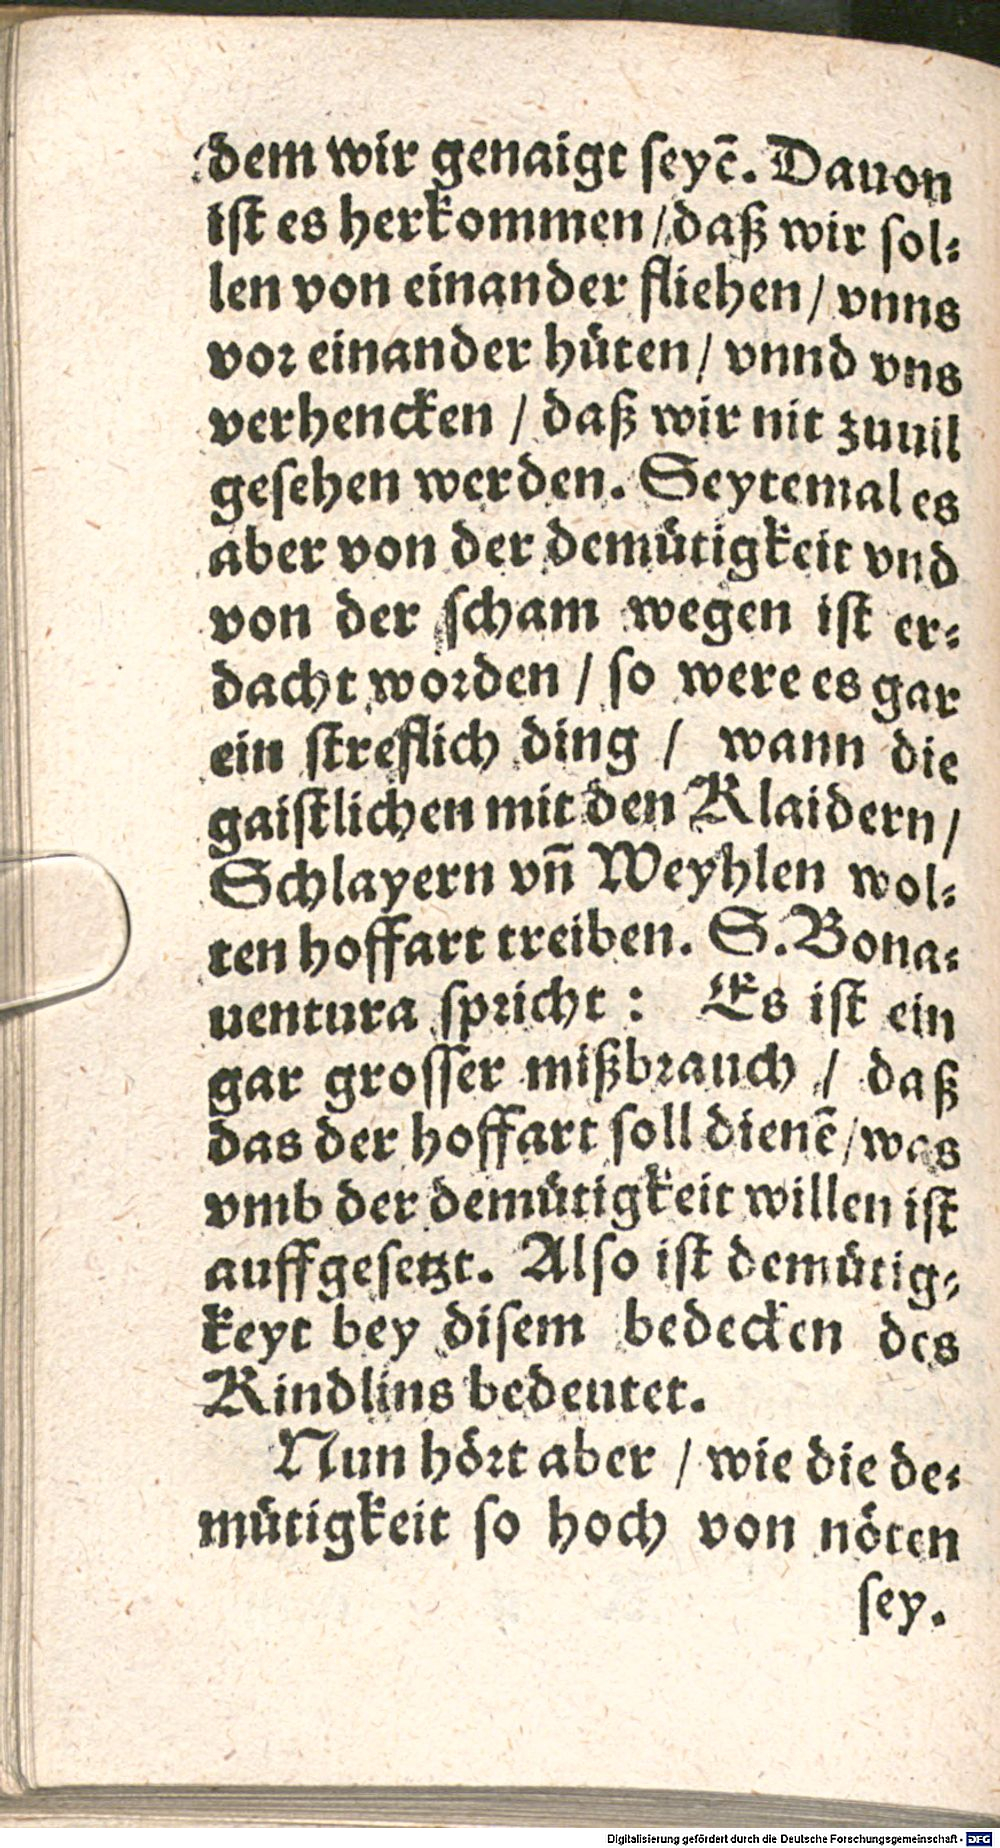 dem wir genaigt seyē. Dauon
ist es herkommen / daß wir sol-
len von einander fliehen / vnns
vor einander hüten / vnnd vns
verhencken / daß wir nit zuuil
gesehen werden. Seytemal es
aber von der demütigkeit vnd
von der scham wegen ist er-
dacht worden / so were es gar
ein streflich ding / wann die
gaistlichen mit den Klaidern /
Schlayern vn̄ Weyhlen wol-
ten hoffart treiben. S. Bona-
uentura spricht : Es ist ein
gar grosser mißbrauch / daß
das der hoffart soll dienē / was
vmb der demütigkeit willen ist
auffgesetzt. Also ist demütig-
keyt bey disem bedecken des
Kindlins bedeutet.
Nun hört aber / wie die de-
mütigkeit so hoch von nöten
sey.
Digitalisierung gefördert durch die Deutsche Forschungsgemeinschaft - DFG